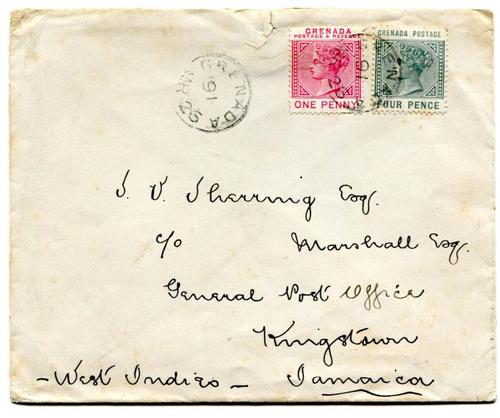 GRENADA
POSTAGE & REVENUE
ONE PENNY
GRENADA POSTAGE
FOUR PENCE
GRENADA
16
MR
92
J. V. Sherring Esq.
c/o Marshall Esq.
General Post Office
Kingstown
- West Indies - Jamaica